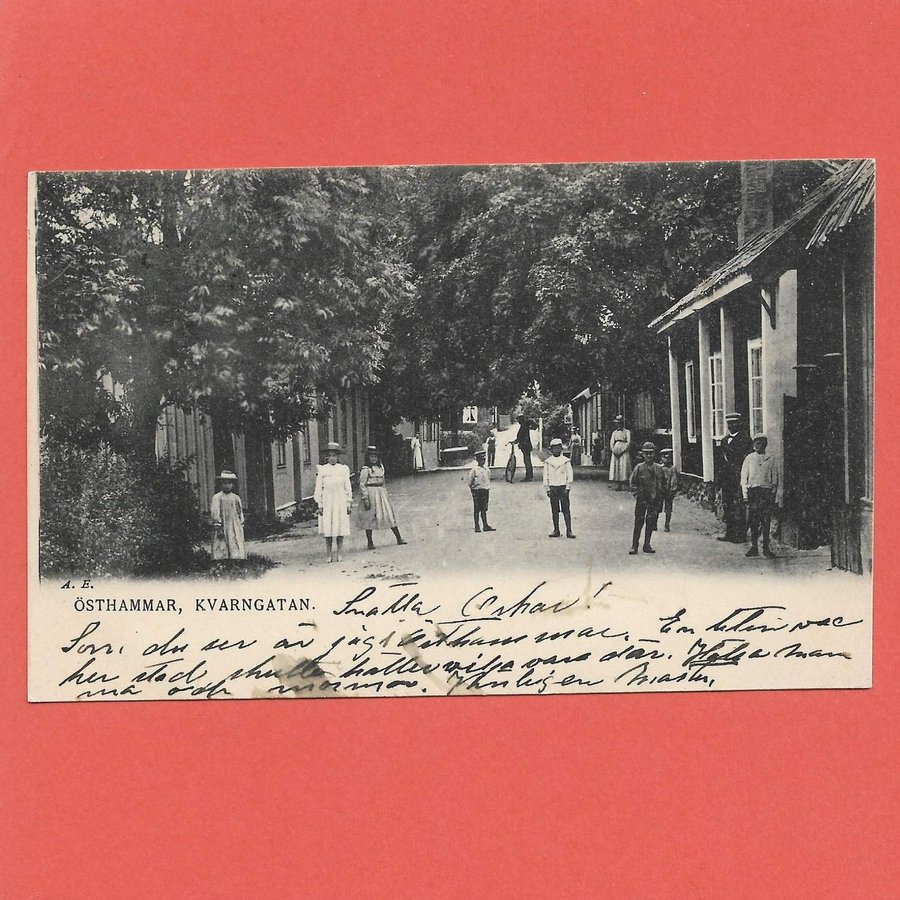 A. E.
ÖSTHAMMAR, KVARNGATAN.
Snälla Oskar!
Som du ser är jag i Östhammar. En liten vac
ker stad skulle vilja vara där. Hälsa mam
ma och mormor. Vänligen